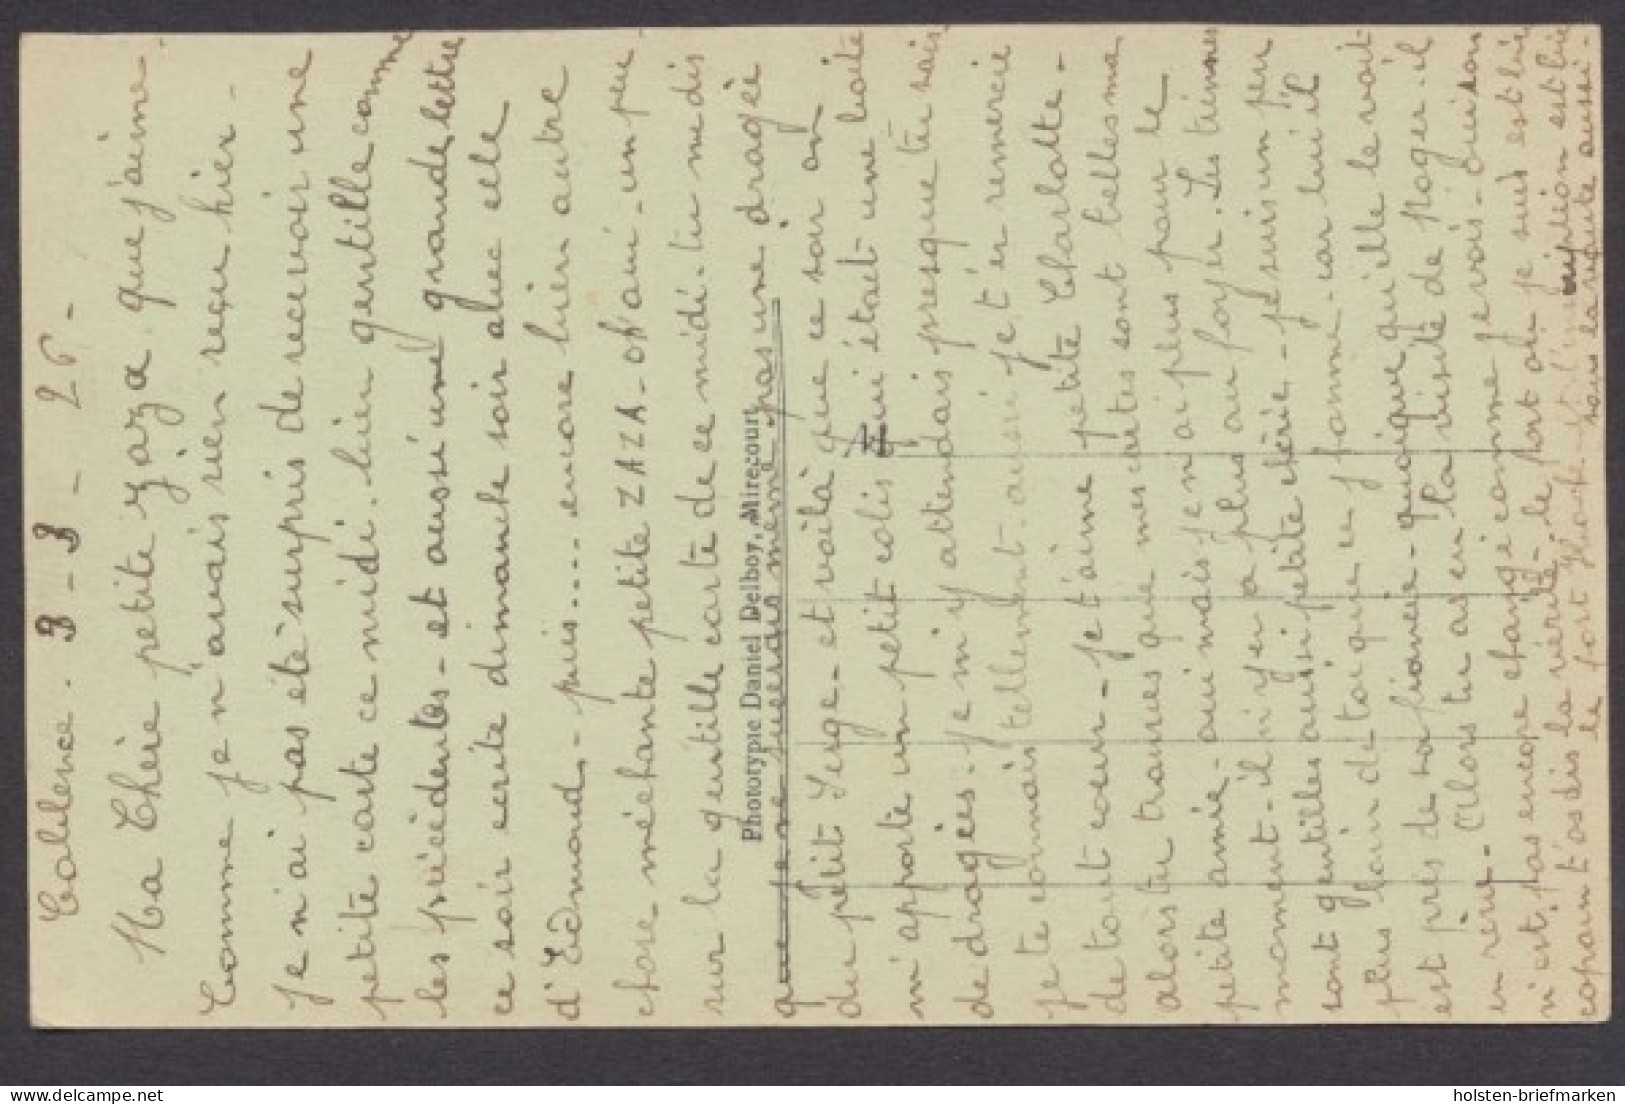 Coblence. 3-3-26-
Ma Chère petite Zaza que j'aime-
Comme je n'avais rien reçu hier-
je n'ai pas été surpris de recevoir une
petite carte ce midi. bien gentille comme
les précédentes- et aussi une grande lettre
ce soir écrite dimanche soir avec celle
d'Edmond.- puis.... encore bien autre
chose méchante petite ZAZA- oh oui- un peu
sur la gentille carte de ce midi- tu me dis
que je ne aurais même pas une dragée
du petit Serge- et voilà que ce soir on
m'apporte un petit colis qui était une boite
de dragées- je m'y attendais presque tu sais
je te connais tellement- aussi je t'en remercie
de tout coeur- je t'aime petite Charlotte-
alors tu trouves que mes cartes sont belles ma
petite amie- oui mais je n'ai plus pour le
moment- il n'y en a plus au foyer. Les tiennes
sont gentilles aussi petite chérie- je suis un peu
plus loin de toi que ce car lui il
est près de sa fiancée- quoique qu'elle le voit
en rêve- Alors tu as eu la visite de Roger. il
n'est pas encore changé comme je vois- oui son
copain t'as dis la vérité- le fort où je suis est
le fort sous la route aussi-
Phototypie Daniel Delboy, Mirecourt
holsten-briefmarken